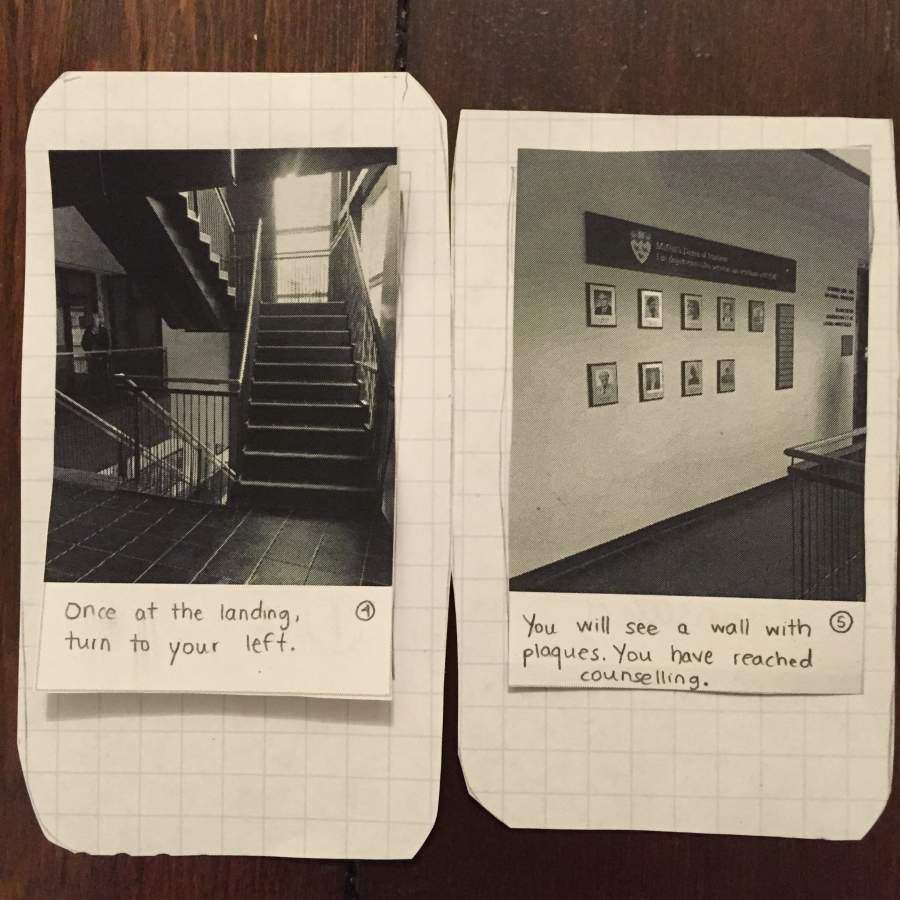 Once at the landing, ④
turn to your left.
McGill's Deans of Students
You will see a wall with ⑤
plaques. You have reached
counselling.